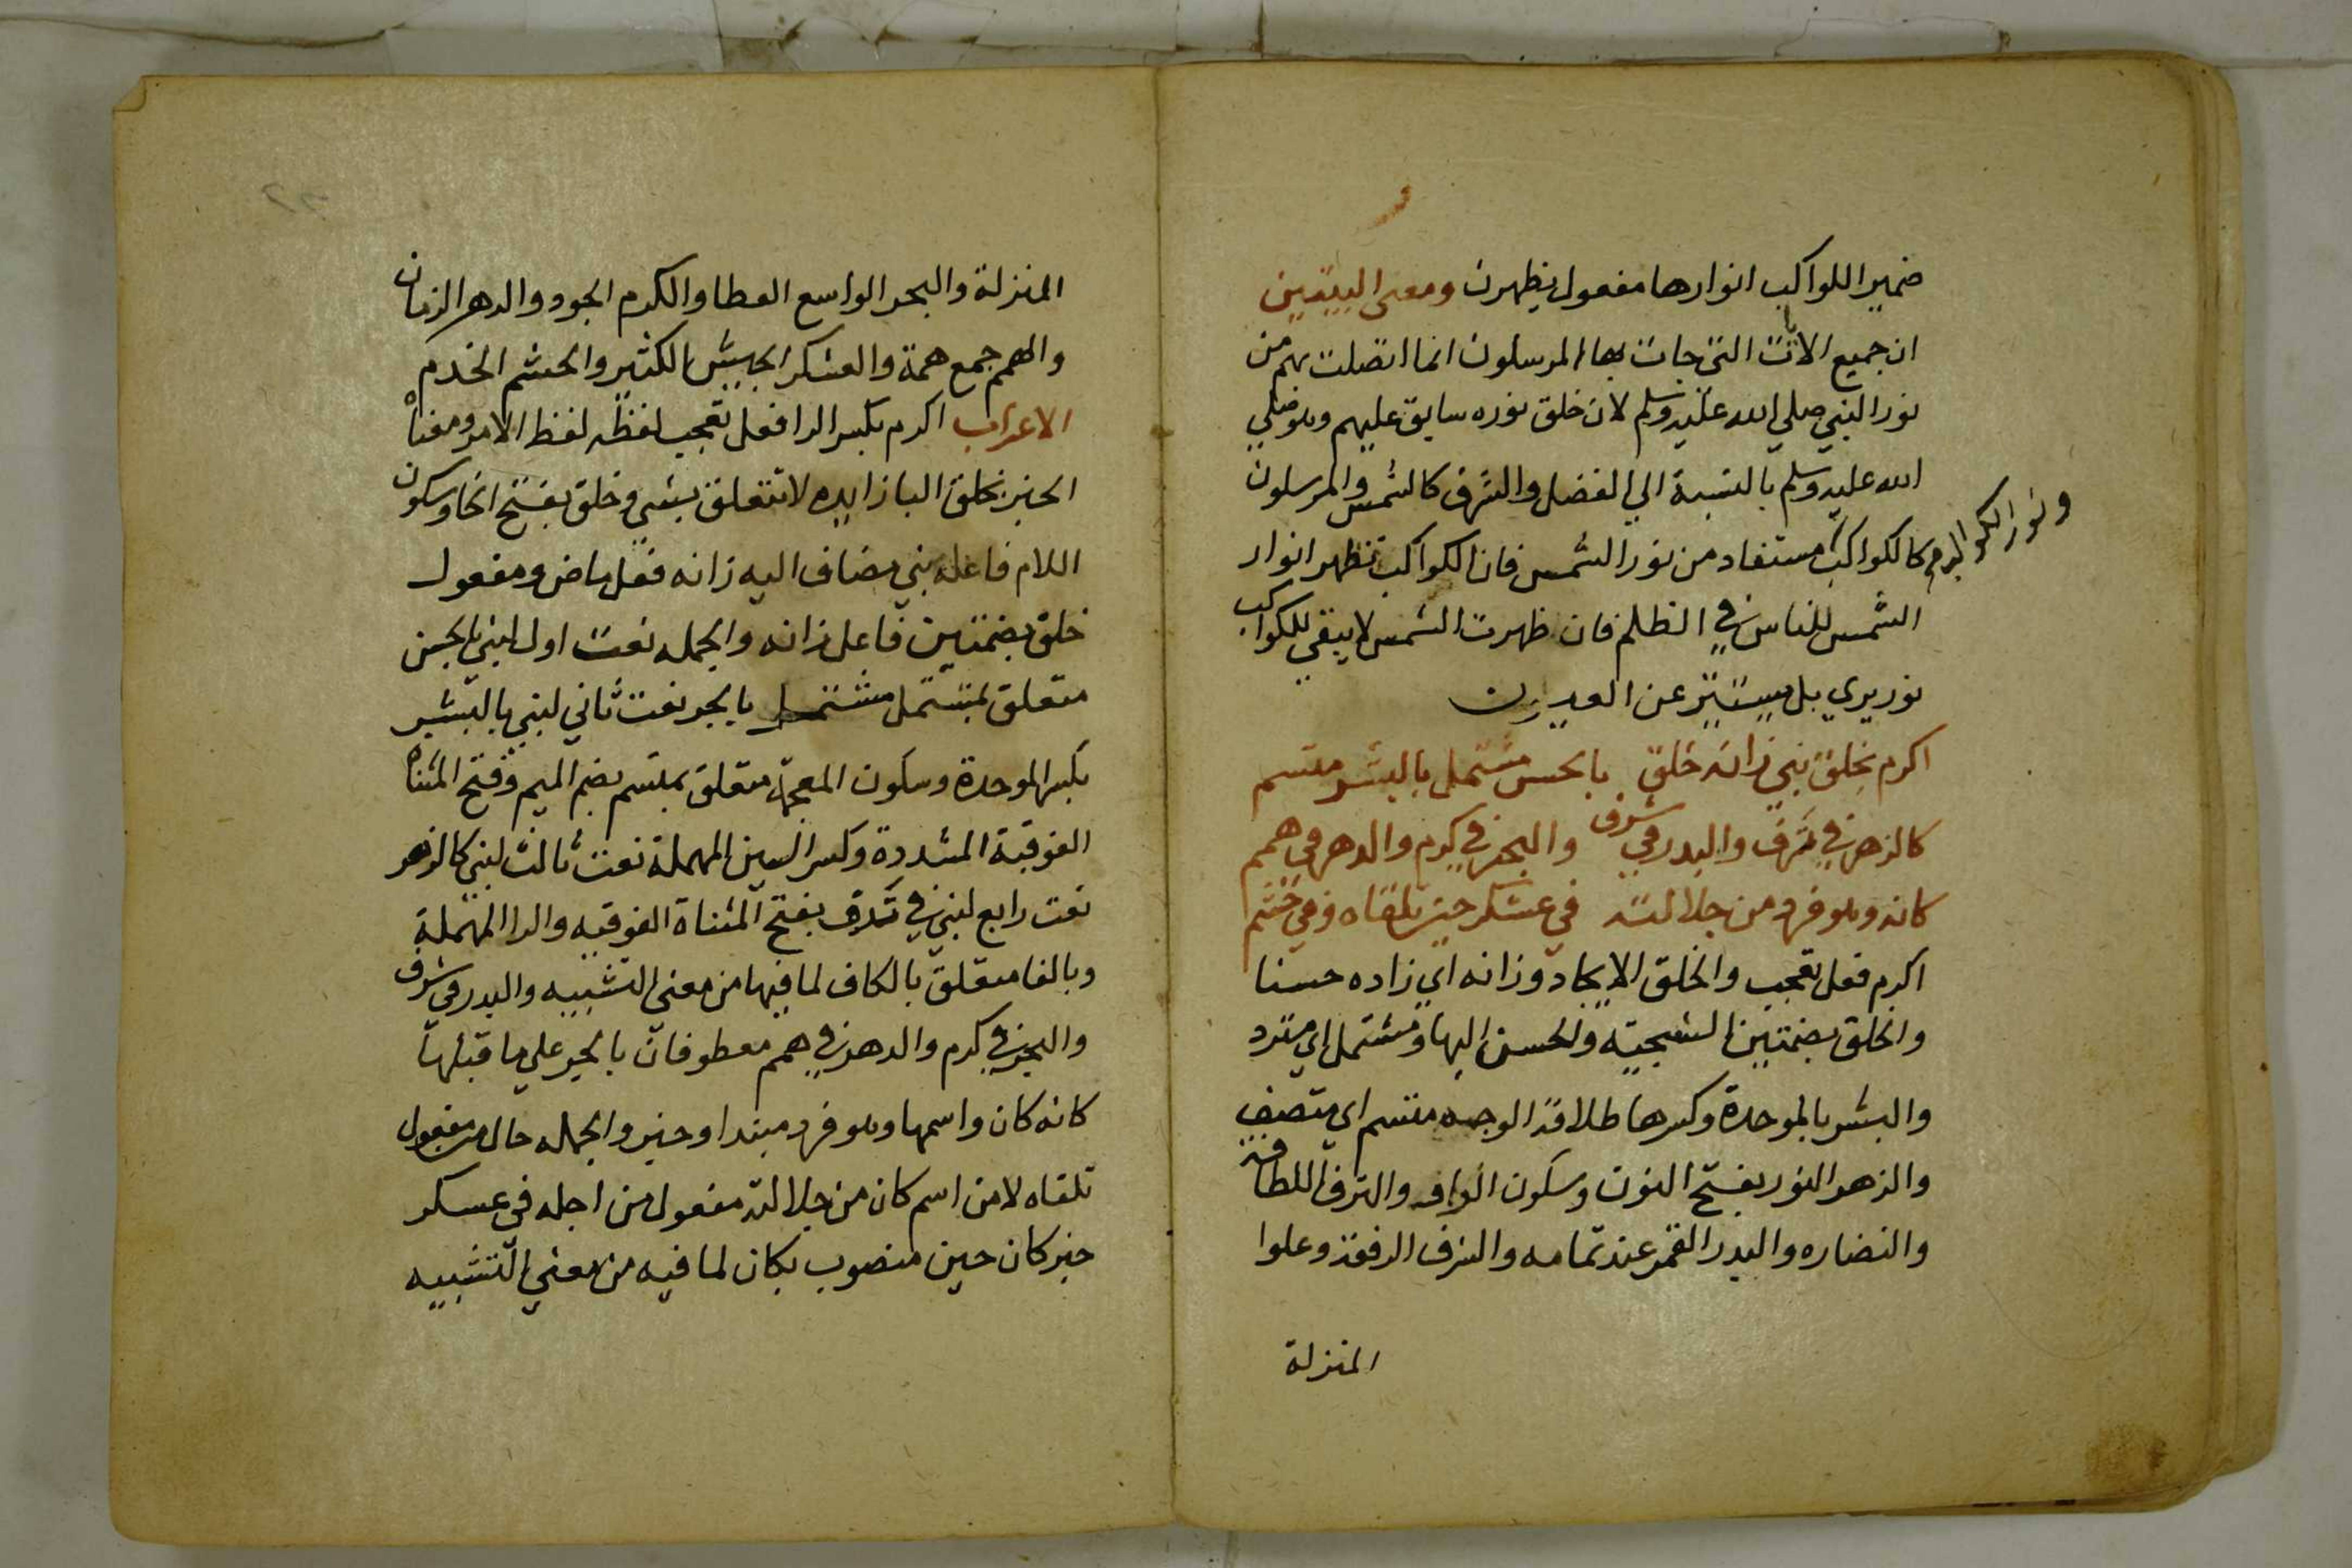 ضمير اللواكب انوارها مفعول يظهرن ومعنى البيتين
ان جميع الايات التى جات بها المرسلون انما اتصلت بهم من
نور النبي صلي الله عليه وسلم لان خلق نوره سابق عليهم وهو صلي
الله عليه وسلم بالنسبة الي الفضل والشرف كالشمس والمرسلون
كالكواكب مستفاد من نور الشمس فان الكواكب تظهر انوار
ونور الكواكب
الشمس للناس في الظلم فان ظهرت الشمس لا يبقي للكواكب
نور يري بل يستتر عن العيون
اكرم بخلق نبي زانه خلق بالحسن مشتمل بالبشر متسم
كالزهر في ترف والبدر في شرف والبحر في كرم والدهر في همم
كانه وهو فرد من جلالته في عسكر حين تلقاه وفي حشم
اكرم فعل تعجب والخلق الايجاد وزانه اي زاده حسنا
والخلق بضمتين السجيته والحسن البها ومشتمل اي مترد
والبشر بالموحدة وكسرها طلاقة الوجه متسم اي متصف
والزهر النور بفتح النون وسكون الواو والترف اللطافة
والنضاره والبدر القمر عند تمامه والشرف الرفعة وعلوا
المنزلة
المنزلة والبحر الواسع العطا والكرم الجود والدهر الزمان
والهمم جمع همة والعسكر الجيش الكثير والحشم الخدم
الاعراب اكرم بكسر الرا فعل تعجب لفظه لفظ الامر ومعناه
الخبر بخلق البا زايده لا تتعلق بشي وخلق بفتح الخا وسكون
اللام فاعله نبي مضاف اليه زانه فعل ماض ومفعول
خلق بضمتين فاعل زانه والجمله نعت اول لنبي بالحسن
متعلق بمشتمل مشتمل بالجر نعت ثاني لنبي بالبشر
بكسر الموحدة وسكون المعجمة متعلق بمتسم بضم الميم وفتح المثناه
الفوقية المشددة وكسر السين المهملة نعت ثالث لنبي كالزهر
نعت رابع لنبي في ترف بفتح المثناة الفوقيه والرا المهملة
وبالفا متعلق بالكاف لما فيها من معنى التشبيه والبدر في شرف
والبحر في كرم والدهر في همم معطوفان بالجر علي ما قبلها
كانه كان واسمها وهو فرد مبتدا وخبر والجمله حال من مفعول
تلقاه لا من اسم كان من جلالته مفعول من اجله في عسكر
خبر كان حين منصوب بكان لما فيه من معني التشبيه